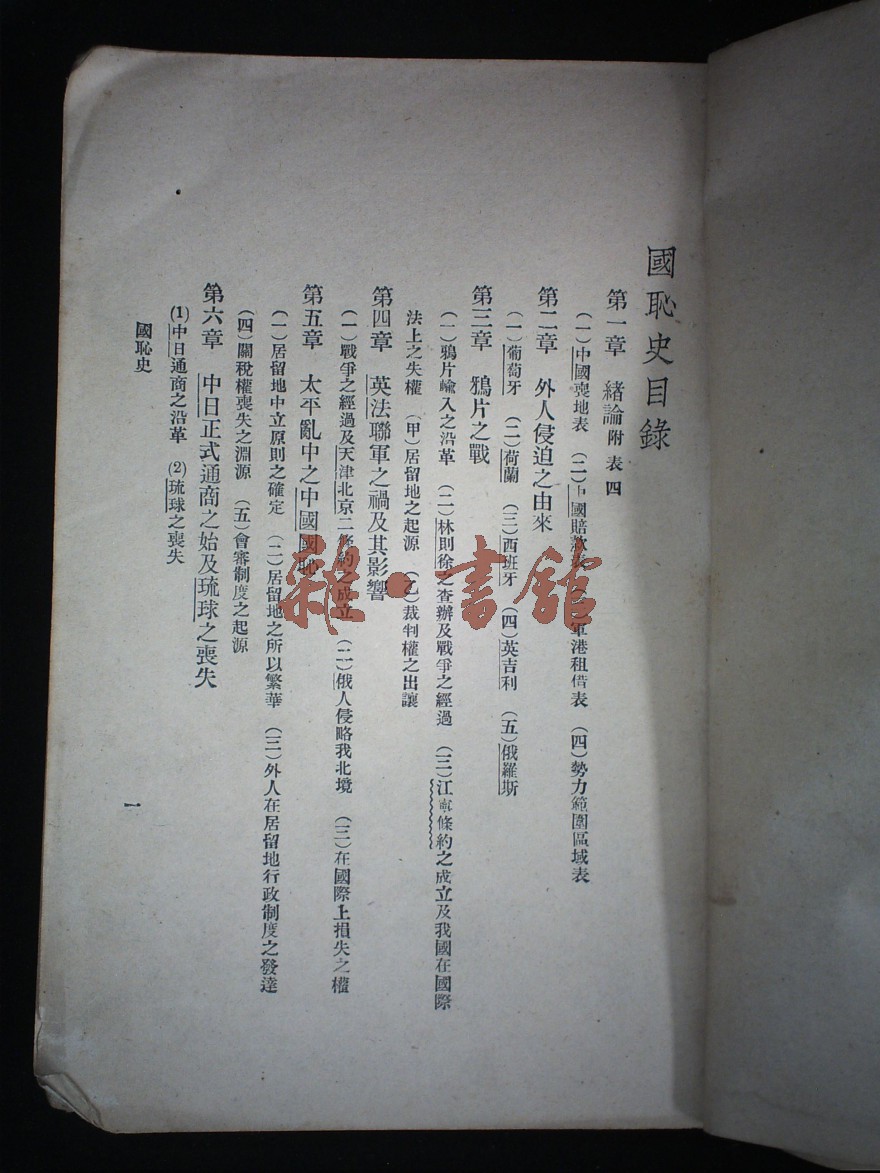 國恥史目錄
第一章 緒論附表四
(一)中國喪地表 (二)中國賠款表 (三)軍港租借表 (四)勢力範圍區域表
第二章 外人侵迫之由來
(一)葡萄牙 (二)荷蘭 (三)西班牙 (四)英吉利 (五)俄羅斯
第三章 鴉片之戰
(一)鴉片輸入之沿革 (二)林則徐之查辦及戰爭之經過 (三)江寧條約之成立及我國在國際
法上之失權 (甲)居留地之起源 (乙)裁判權之出讓
第四章 英法聯軍之禍及其影響
(一)戰爭之經過及天津北京二條約之成立 (二)俄人侵略我北境 (三)在國際上損失之權
第五章 太平亂中之中國國恥
(一)居留地中立原則之確定 (二)居留地之所以繁華 (三)外人在居留地行政制度之發達
(四)關稅權喪失之淵源 (五)會審制度之起源
第六章 中日正式通商之始及琉球之喪失
(1)中日通商之沿革 (2)琉球之喪失
國恥史
一
雜·書館